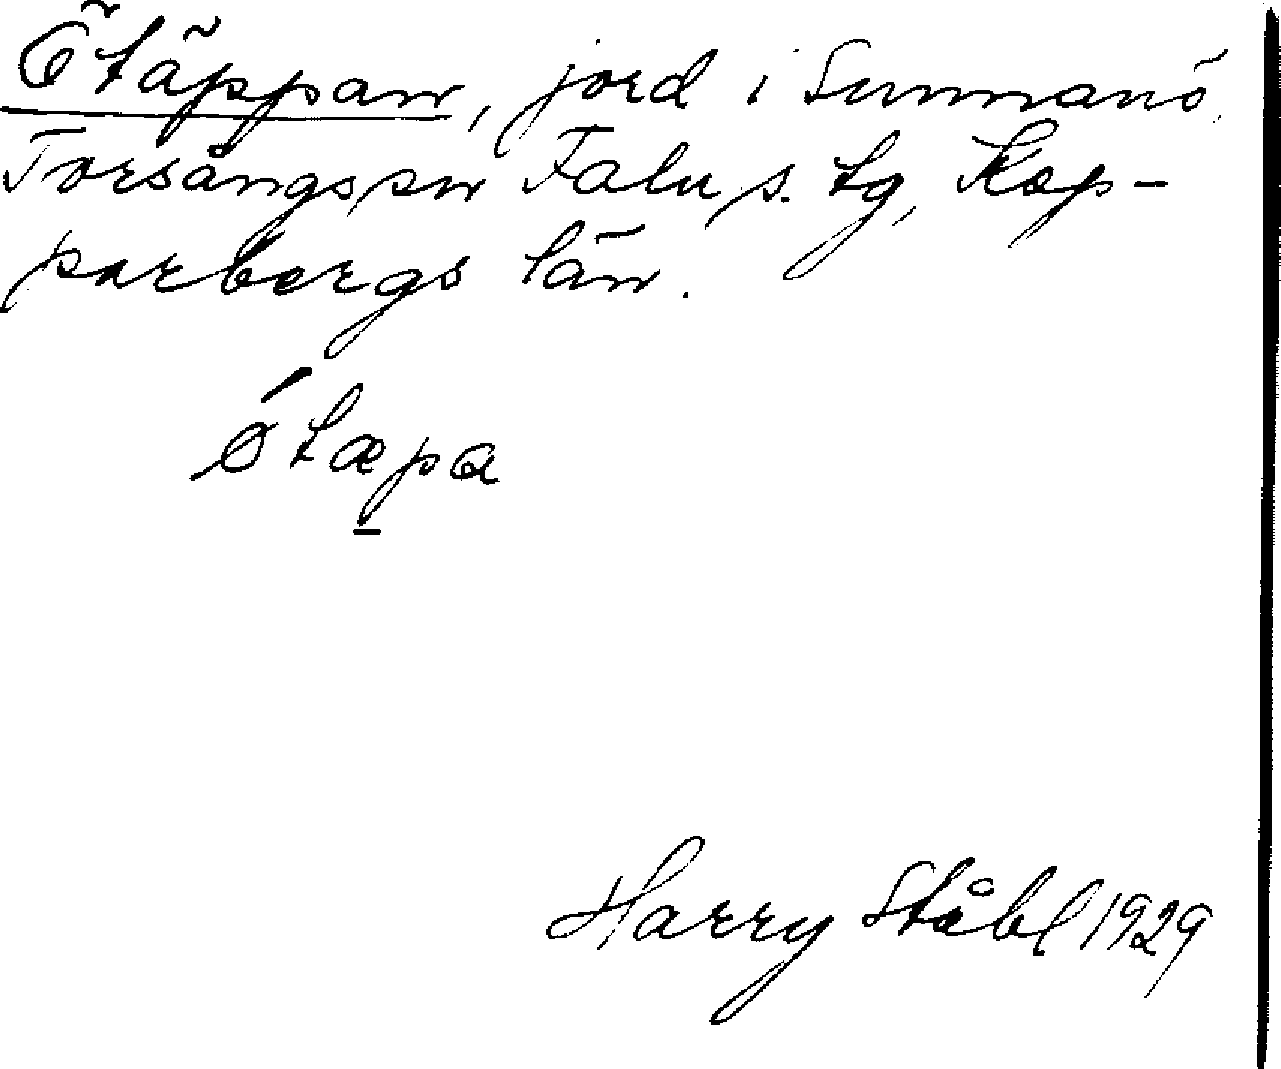 Ötäppan, jord i Sunnanö,
Torsångs sn Falu s. tg, Kop-
parbergs län.
ǿtæpa
Harry Ståhl 1929